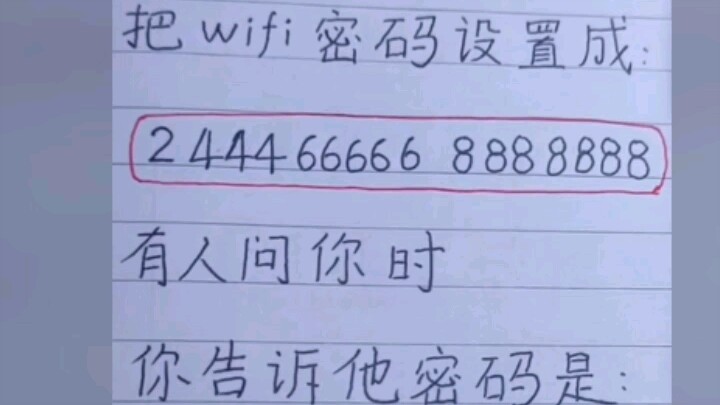 把wifi密码设置成:
2444666668888888
有人问你时
你告诉他密码是: